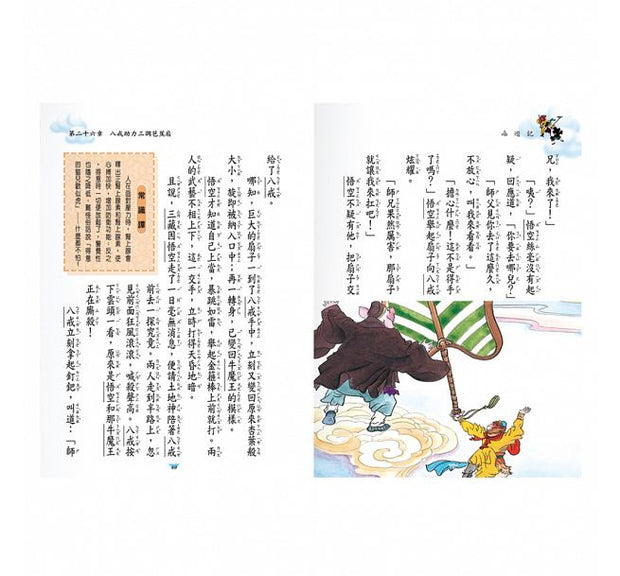 西遊記
兄,我來了!」
「咦?」悟空絲毫沒有起
疑,回應道:「你要去哪兒?」
「師父見你去了這麼久,
不放心,叫我來看看。」
「擔心什麼!這不是得手
了嗎?」悟空舉起扇子向八戒
炫耀。
「師兄果然厲害,那扇子
就讓我來扛吧!」
悟空不疑有他,把扇子交
第二十六章 八戒助力二調芭蕉扇
給了八戒。
哪知,巨大的扇子一到了八戒手中,立刻又變回原來杏葉般
大小,旋即被納入口中;再一轉身,已變回牛魔王的模樣。
悟空才知道自己上當,暴跳如雷,舉起金箍棒上前就打。兩
人的武藝不相上下,這一交手,立時打得天昏地暗。
且說,三藏因悟空走了一日毫無消息,便請土地神陪著八戒
前去一探究竟。兩人走到半路上,忽
見前面狂風滾滾,喊殺聲高。八戒按
下雲頭一看,原來是悟空和那牛魔王
正在廝殺!
八戒立刻拿起釘鈀,叫道:「師
常識課
人在面對壓力時,腎上腺會
釋出正腎上腺素和腎上腺素,使
心搏加快,增加防衛功能;反之
,得意時一切便放鬆了,警覺性
也隨之降低,難怪俗話說「得意
的貓兒歡似虎」——什麼都不怕!